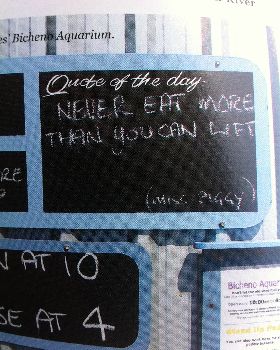 River
es' Bicheno Aquarium.
Quote of the day:
NEVER EAT MORE
THAN YOU CAN LIFT
(MISS PIGGY)
RE
N AT 10
SE AT 4
Bicheno Aquari